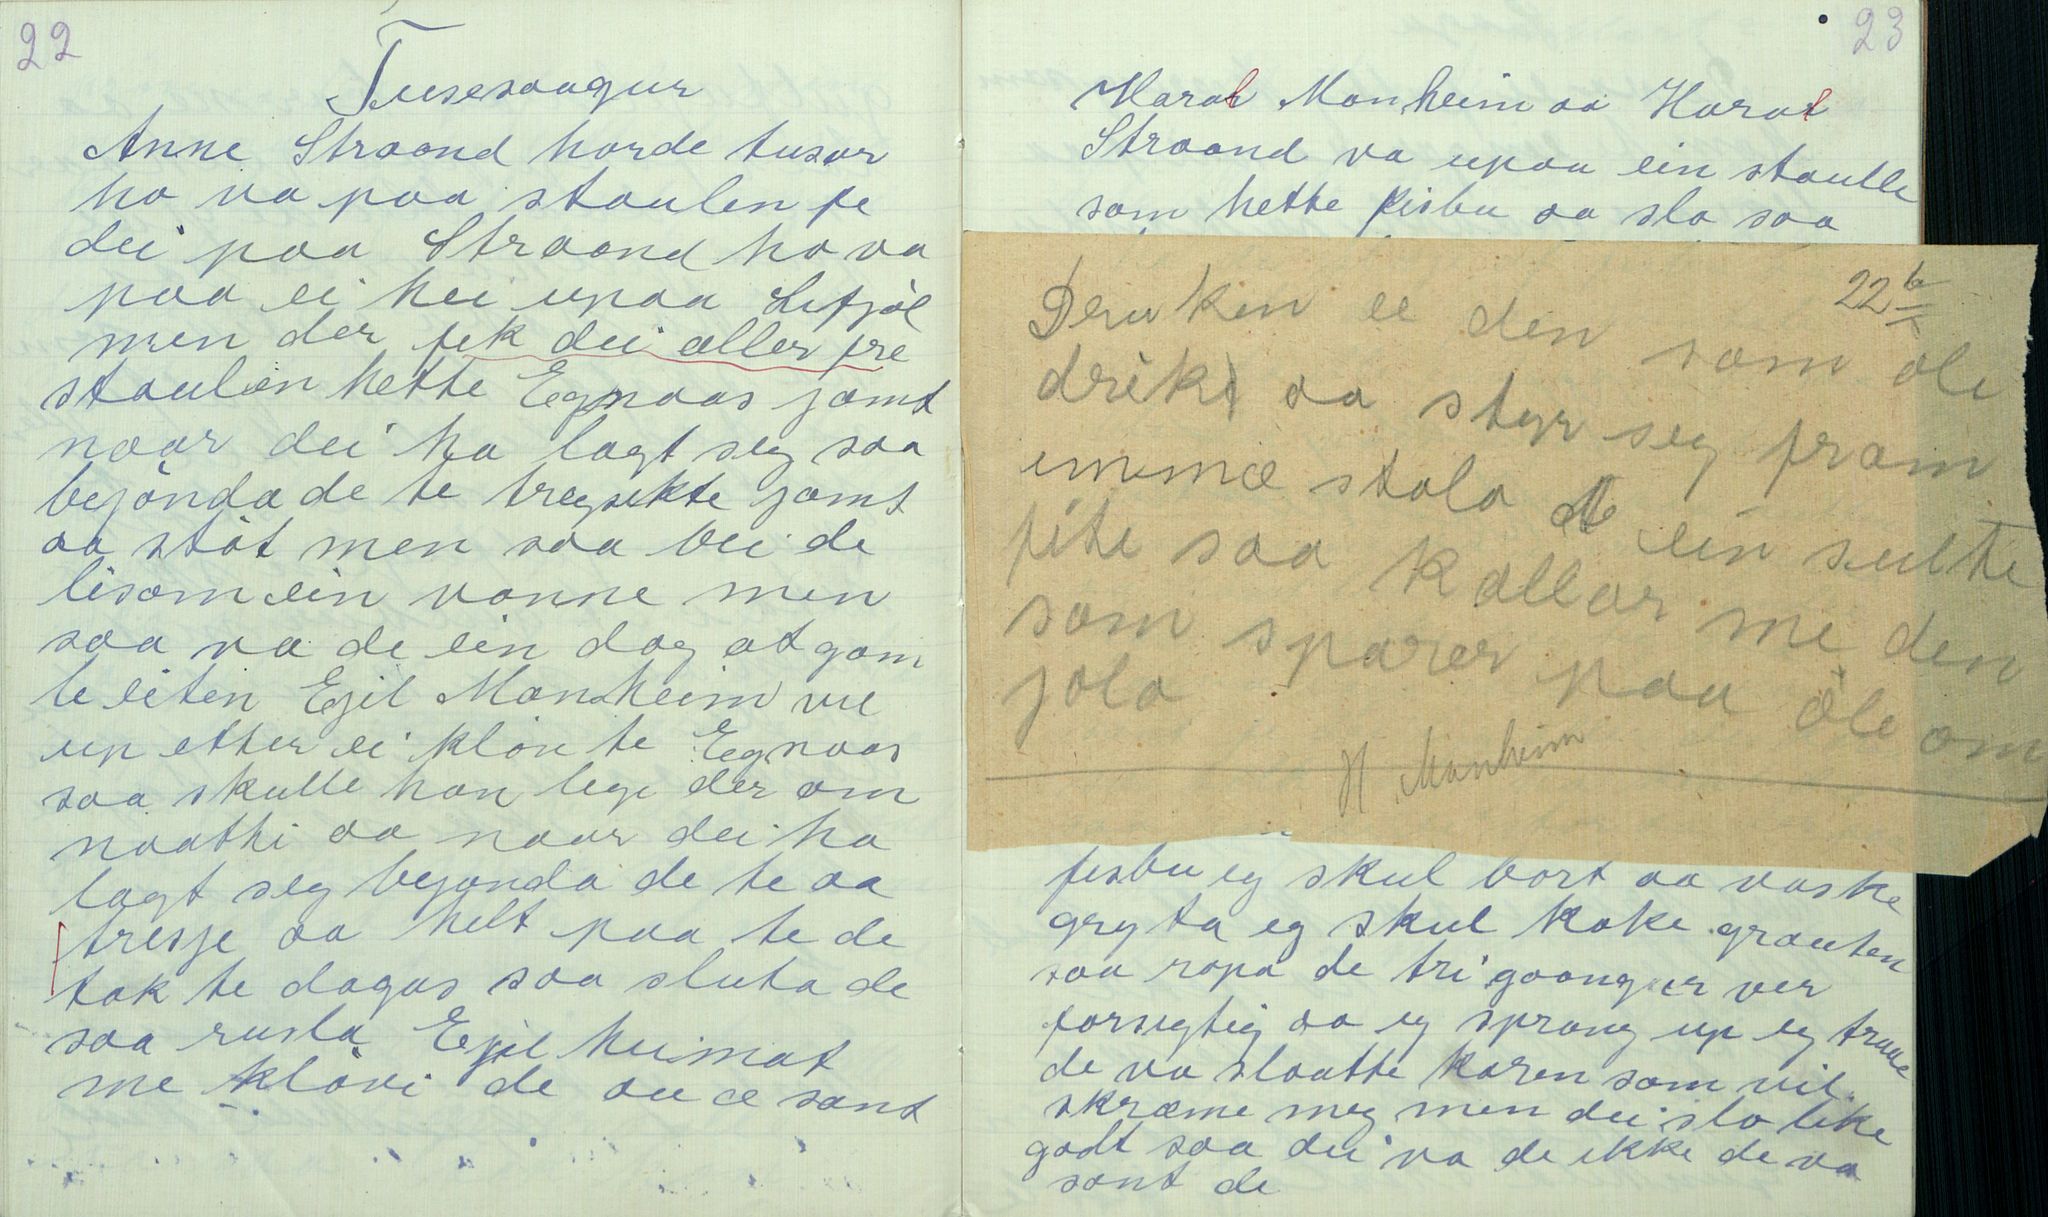 22
Tusesaagur
Anne Straand horde tusar
ho va paa staulen fe
dei paa Straand ho va
paa ei hei upaa Lifjöl
men der fek dei aller fre
staulen hette Egnaas jamt
naar dei ha lagt seg saa
bejönda de te treysekte jamt
aa støt men saa bei de
lisom ein vanne men
saa va de ein dag at gam
le eiten Egil Manheim vul
up etter ei klöv te Egnaas
saa skulle han lege der om
naatti aa naar dei ha
lagt seg bejonda de te aa
tresje aa helt paa te de
tok te dagas saa sluta de
saa rusla Egil heimat
me klövi de au æ sant
23
Haral Manheim aa Haral
Straand va upaa ein staulle
som hette fisbu aa slo saa
22 b
Druken ee den som öle
drikt aa styr seg fram
imme stola ein sulte
fite saa kallar me den
som sparer paa öle om
jola
H Manheim
fesbu eg skul bort aa vaske
gryta eg skul koke grauten
saa ropa de tri gaangur ver
forsegtig aa eg sprang up eg traue
de va slaatte karen som vil
skræme meg men dei slo like
godt saa dei va de ikke de va
sant de